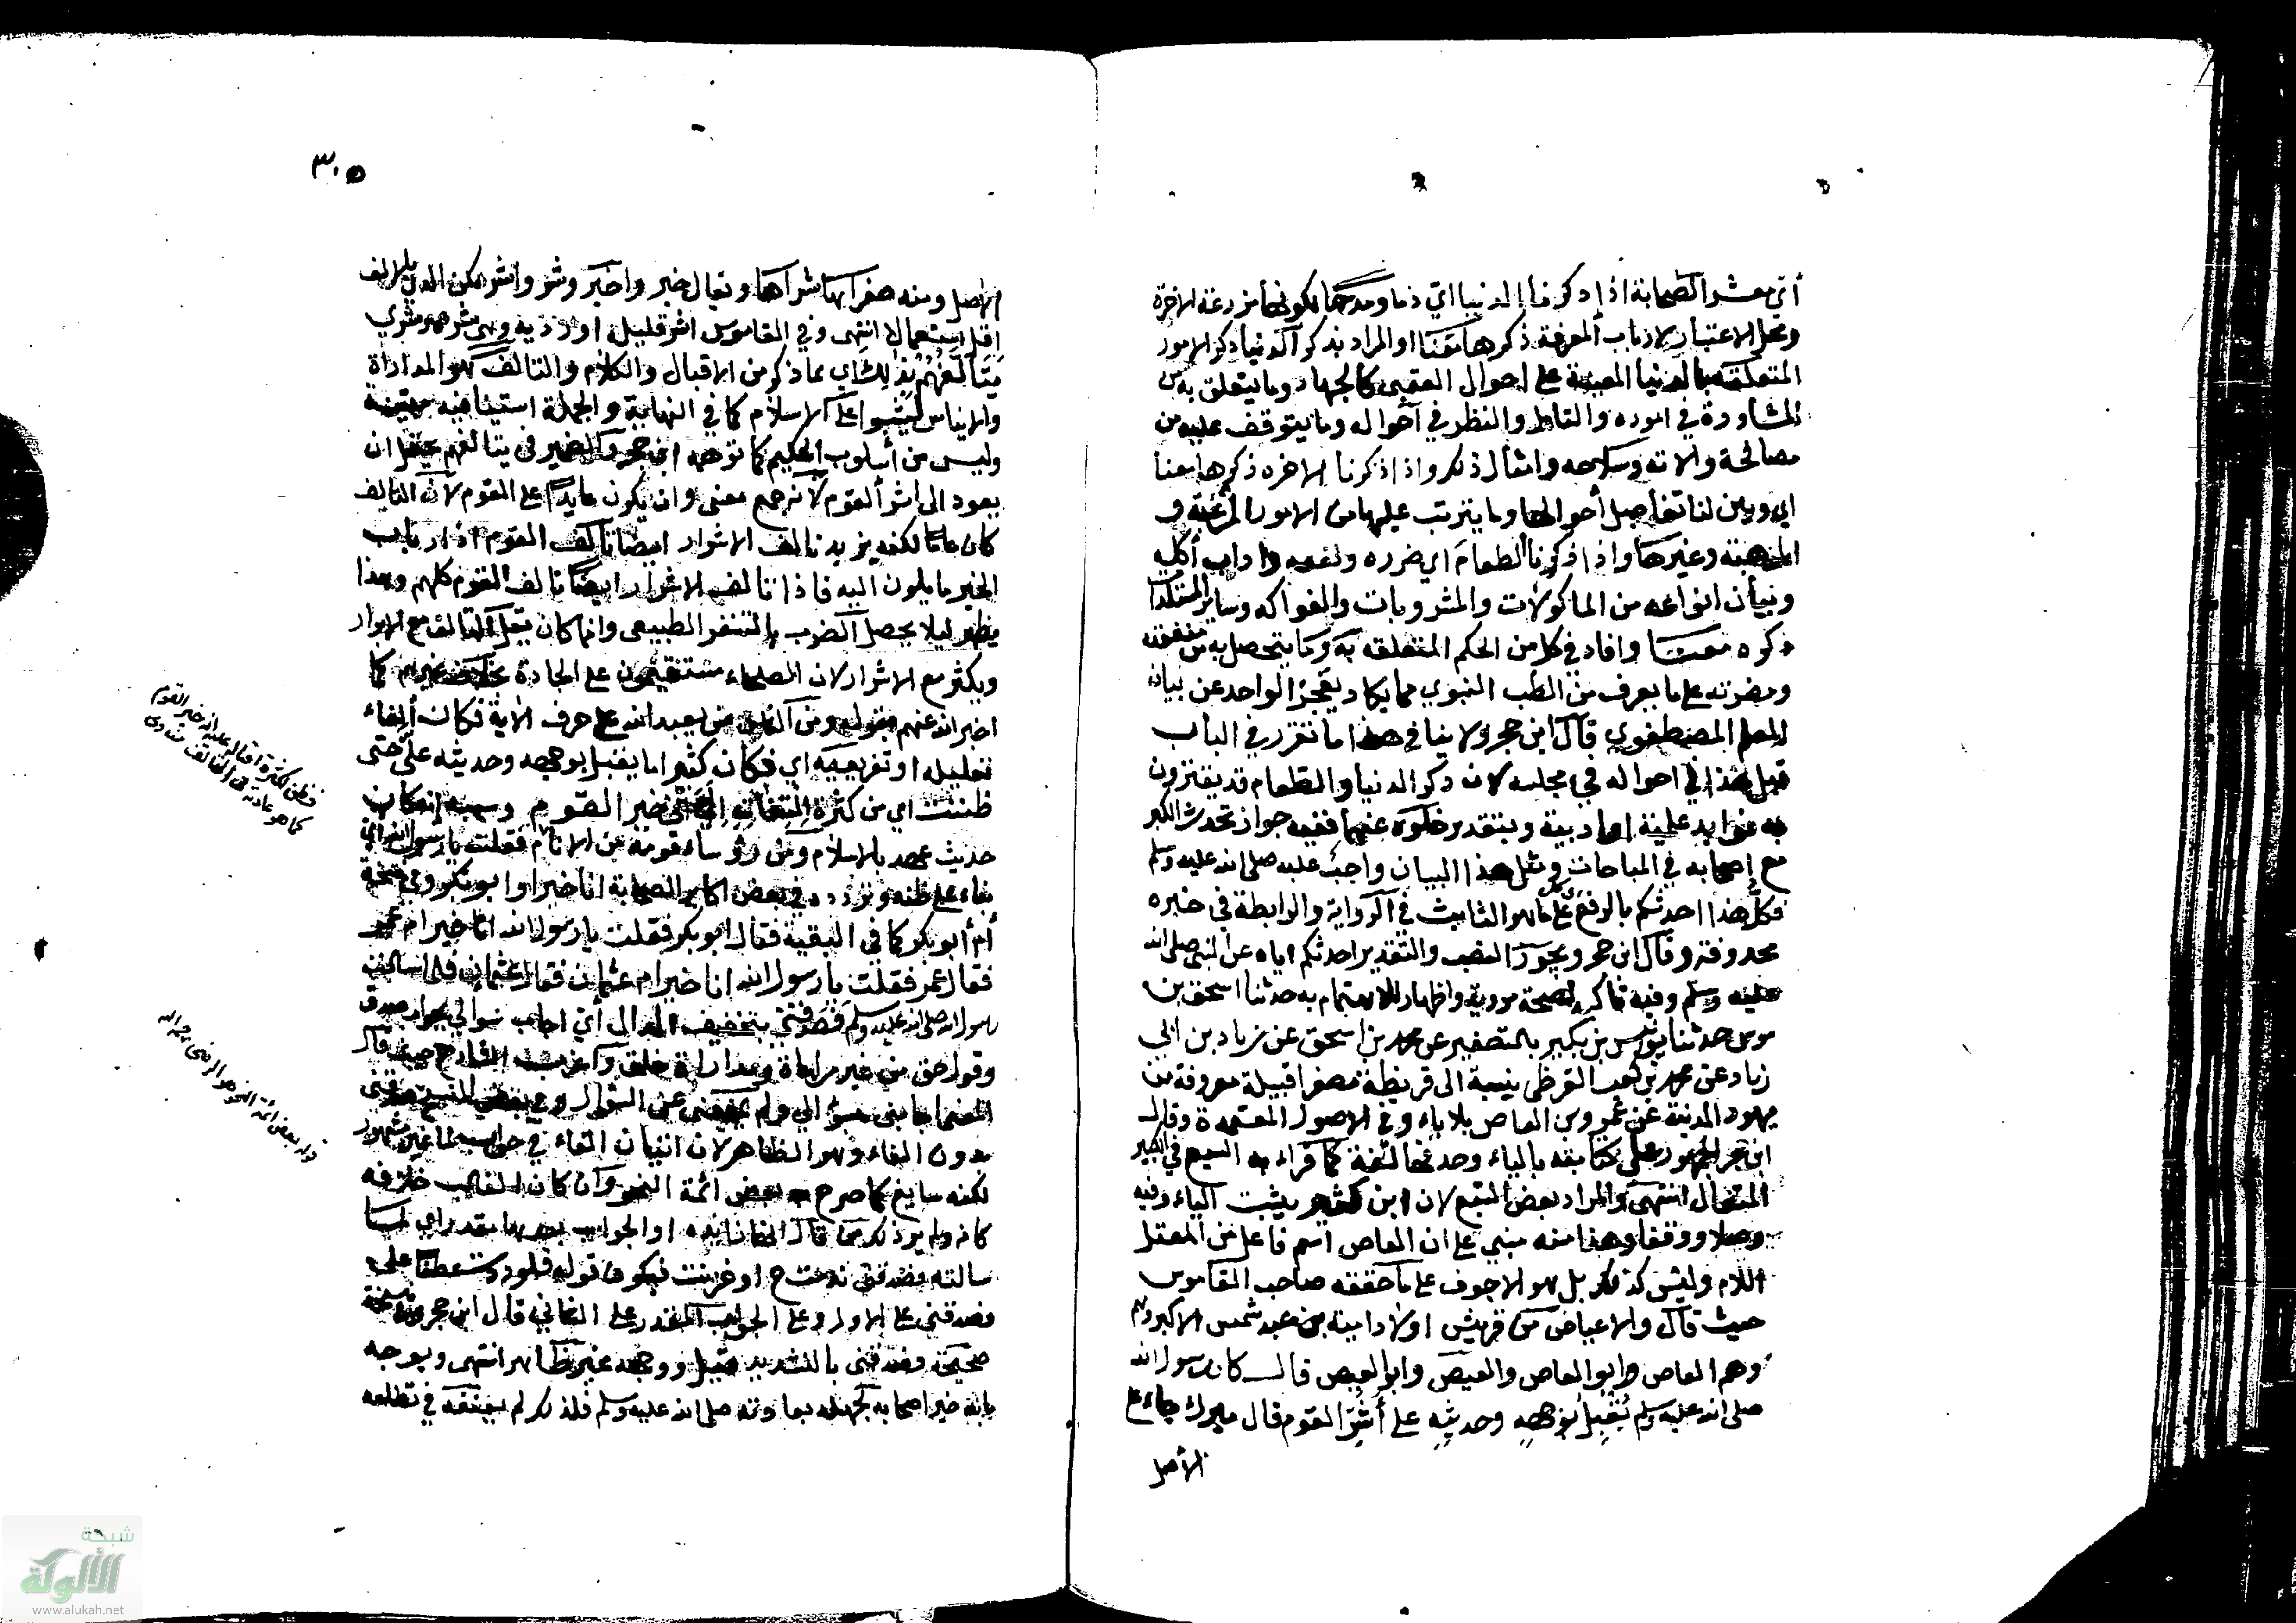 أي معشر الصحابة اذا ذكرنا الدنيا اي ذما ومدحا لكونها مزرعة الاخرة
ومحل الاعتبار لارباب المعرفة ذكرها معنا او المراد بذكر الدنيا ذكر الامور
المتعلقة بالدنيا المعينة على احوال العقبى كالجهاد وما يتعلق به من
المشاورة في اموره والتامل والنظر في احواله وما يتوقف عليه من
مصالحة والاته وسلاحه وامثال ذلك واذا ذكرنا الاخره ذكرها معنا
اي وبين لنا تفاصيل أحوالها وما يترتب عليها من الامور المرغبة و
المرهبة وغيرها واذا ذكرنا الطعام اي ضرره ونفعه واداب أكله
وبيان انواعه من الماكولات والمشروبات والفواكه وساير المستلذات
ذكره معنا وافاد في كل من الحكم المتعلقه به وما يتحصل به من منفعته
ومضرته على ما يعرف من الطب النبوي مما يكاد يعجز الواحد عن بيان
المعلم المصطفوي قال ابن حجر ولا ينافي هذا ما تقرر في الباب
قبل هذا في احواله في مجلسه لان ذكر الدنيا والطعام قد يقترن
به فوايد علمية او ادبية وبتقدير خلوه عنهما ففيه جواز تحدث الكبير
مع اصحابه في المباحات ومثل هذا البيان واجب عليه صلى الله عليه وسلم
فكل هذا احدثكم بالرفع على ما هو الثابت في الرواية والرابطة في خبره
محذوفة وقال ابن حجر ويجوز النصب والتقدير احدثكم اياه عن النبي صلى الله
عليه وسلم وفيه تاكيد لصحة مروية واظهار للاهتمام به حدثنا اسحق بن
موسى حدثنا يونس بن بكير بالتصغير عن محمد بن اسحق عن زياد بن ابي
زياد عن محمد بن كعب القرظي ينسبة الى قريظة مصغرا قبيلة معروفة من
يهود المدينة عن عمرو بن العاص بلا ياء وفي الاصول المعتمدة وقال
ابن حجر الجمهور على كتابته بالياء وحدفها لغة كما قراء به السبع في الكبير
المتعال انتهى والمراد بعض السبع لان ابن كثير يثبت الياء وفيه
وصلا ووقفا وهذا منه مبني على ان العاص اسم فاعل من المعتل
اللام وليس كذلك بل هو الاجوف على ما حققه صاحب القاموس
حيث قال والاعياص من قريش اولاد امية بن عبد شمس الاكبر
وهم العاص وابو العاص والعيص وابو العيص قال كان رسول الله
صلى الله عليه وسلم يُقْبِلُ بوجهه وحديثه على أشر القوم قال ميرك جاء على
الأصل
٣٠٥
الاصل ومنه صغراها شراها ويقال خير واخير وشر واشر لكن الذي بالالف
اقل استعمالا انتهى وفي القاموس اشر قليلة او ردية
يَتَأَلَّفُهُمْ بذلك اي بما ذكر من الاقبال والكلام والتالف هو المداراة
والايناس ليثبتوا على الاسلام كما في النهاية والجملة استينافية مبينة
وليس من أسلوب الحكيم كما توهمه ابن حجر والضمير في يتالفهم يحتمل ان
يعود الى اشر القوم لانه جمع معنى وان يكون عايدا على القوم لان التالف
كان عاما لكنه يزيد تالف الاشرار ايضا تالف القوم اذ ارباب
الخير مايلون اليه فاذا تالف الاشرار ايضا تالف القوم كلهم وهذا
ليلا يحصل الضرب بالتنفر الطبيعي وانما كان يقل التالف مع الابرار
ويكثر مع الاشرار لان الصلحاء مستقيمون على الجادة بخلاف غيرهم كما
اخبر الله عنهم بقوله ومن الناس من يعبد الله على حرف الاية فكان الفاء
تعليلية او تفريعية اي فكان كثيرا ما يقبل بوجهه وحديثه عليّ حتى
ظننت اي من كثرة التفاته الي اني خير القوم وسببه انه كان
حديث عهد بالاسلام ومن رؤساء قومه فقلت يا رسول الله
بناء على ظنه وتردده في بعض اكابر الصحابة انا خير او ابو بكر وفي نسخة
أم أبو بكر كما في البقية فقال ابو بكر فقلت يا رسول الله انا خير ام عمر
فقال عمر فقلت يا رسول الله انا خير ام عثمان فقال عثمان فلما سالت
رسول الله صلى الله عليه وسلم فصدقني بتخفيف الدال أي اجاب سوالي بجواب صدق
وقول حق من غير مراعاة ومداراة خلق واغرب الشارح حيث قال
اجابني بسؤالي ولم يمنعني عن السؤال وفي بعض النسخ صدقني
بدون الفاء وهو الظاهر لان اتيان الفاء في جواب لما غير مشهور
لكنه سايغ كما صرح به بعض ائمة النحو وان كان الغالب خلافه
سالته فصدقني ندمت قوله فلوددت عطفا على
فصدقني على الاول وعلى الجواب المقدر على الثاني قال ابن حجر وفي نسخة
صحيحة فصدقني بالتشديد قيل ووجهه غير ظاهر انتهى ويوجه
بانه خير اصحابه لجهله بعادته صلى الله عليه وسلم فلذلك لم
فظن لكثرة اقباله عليه انه خير القوم
كما هو عادته في التالف
بعض ائمة النحو هو الرضي رحمه الله
شبكة
الألوكة
www.alukah.net